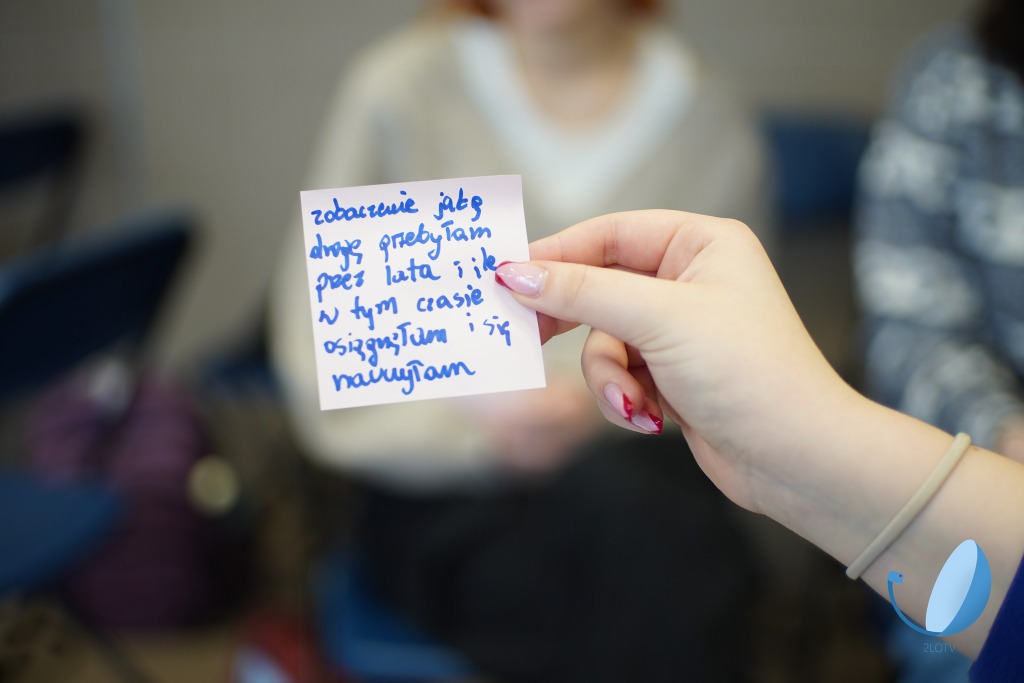 zobaczenie jaką
drogę przebyłam
przez lata i ile
w tym czasie
osiągnęłam i się
nauczyłam
2LOTV